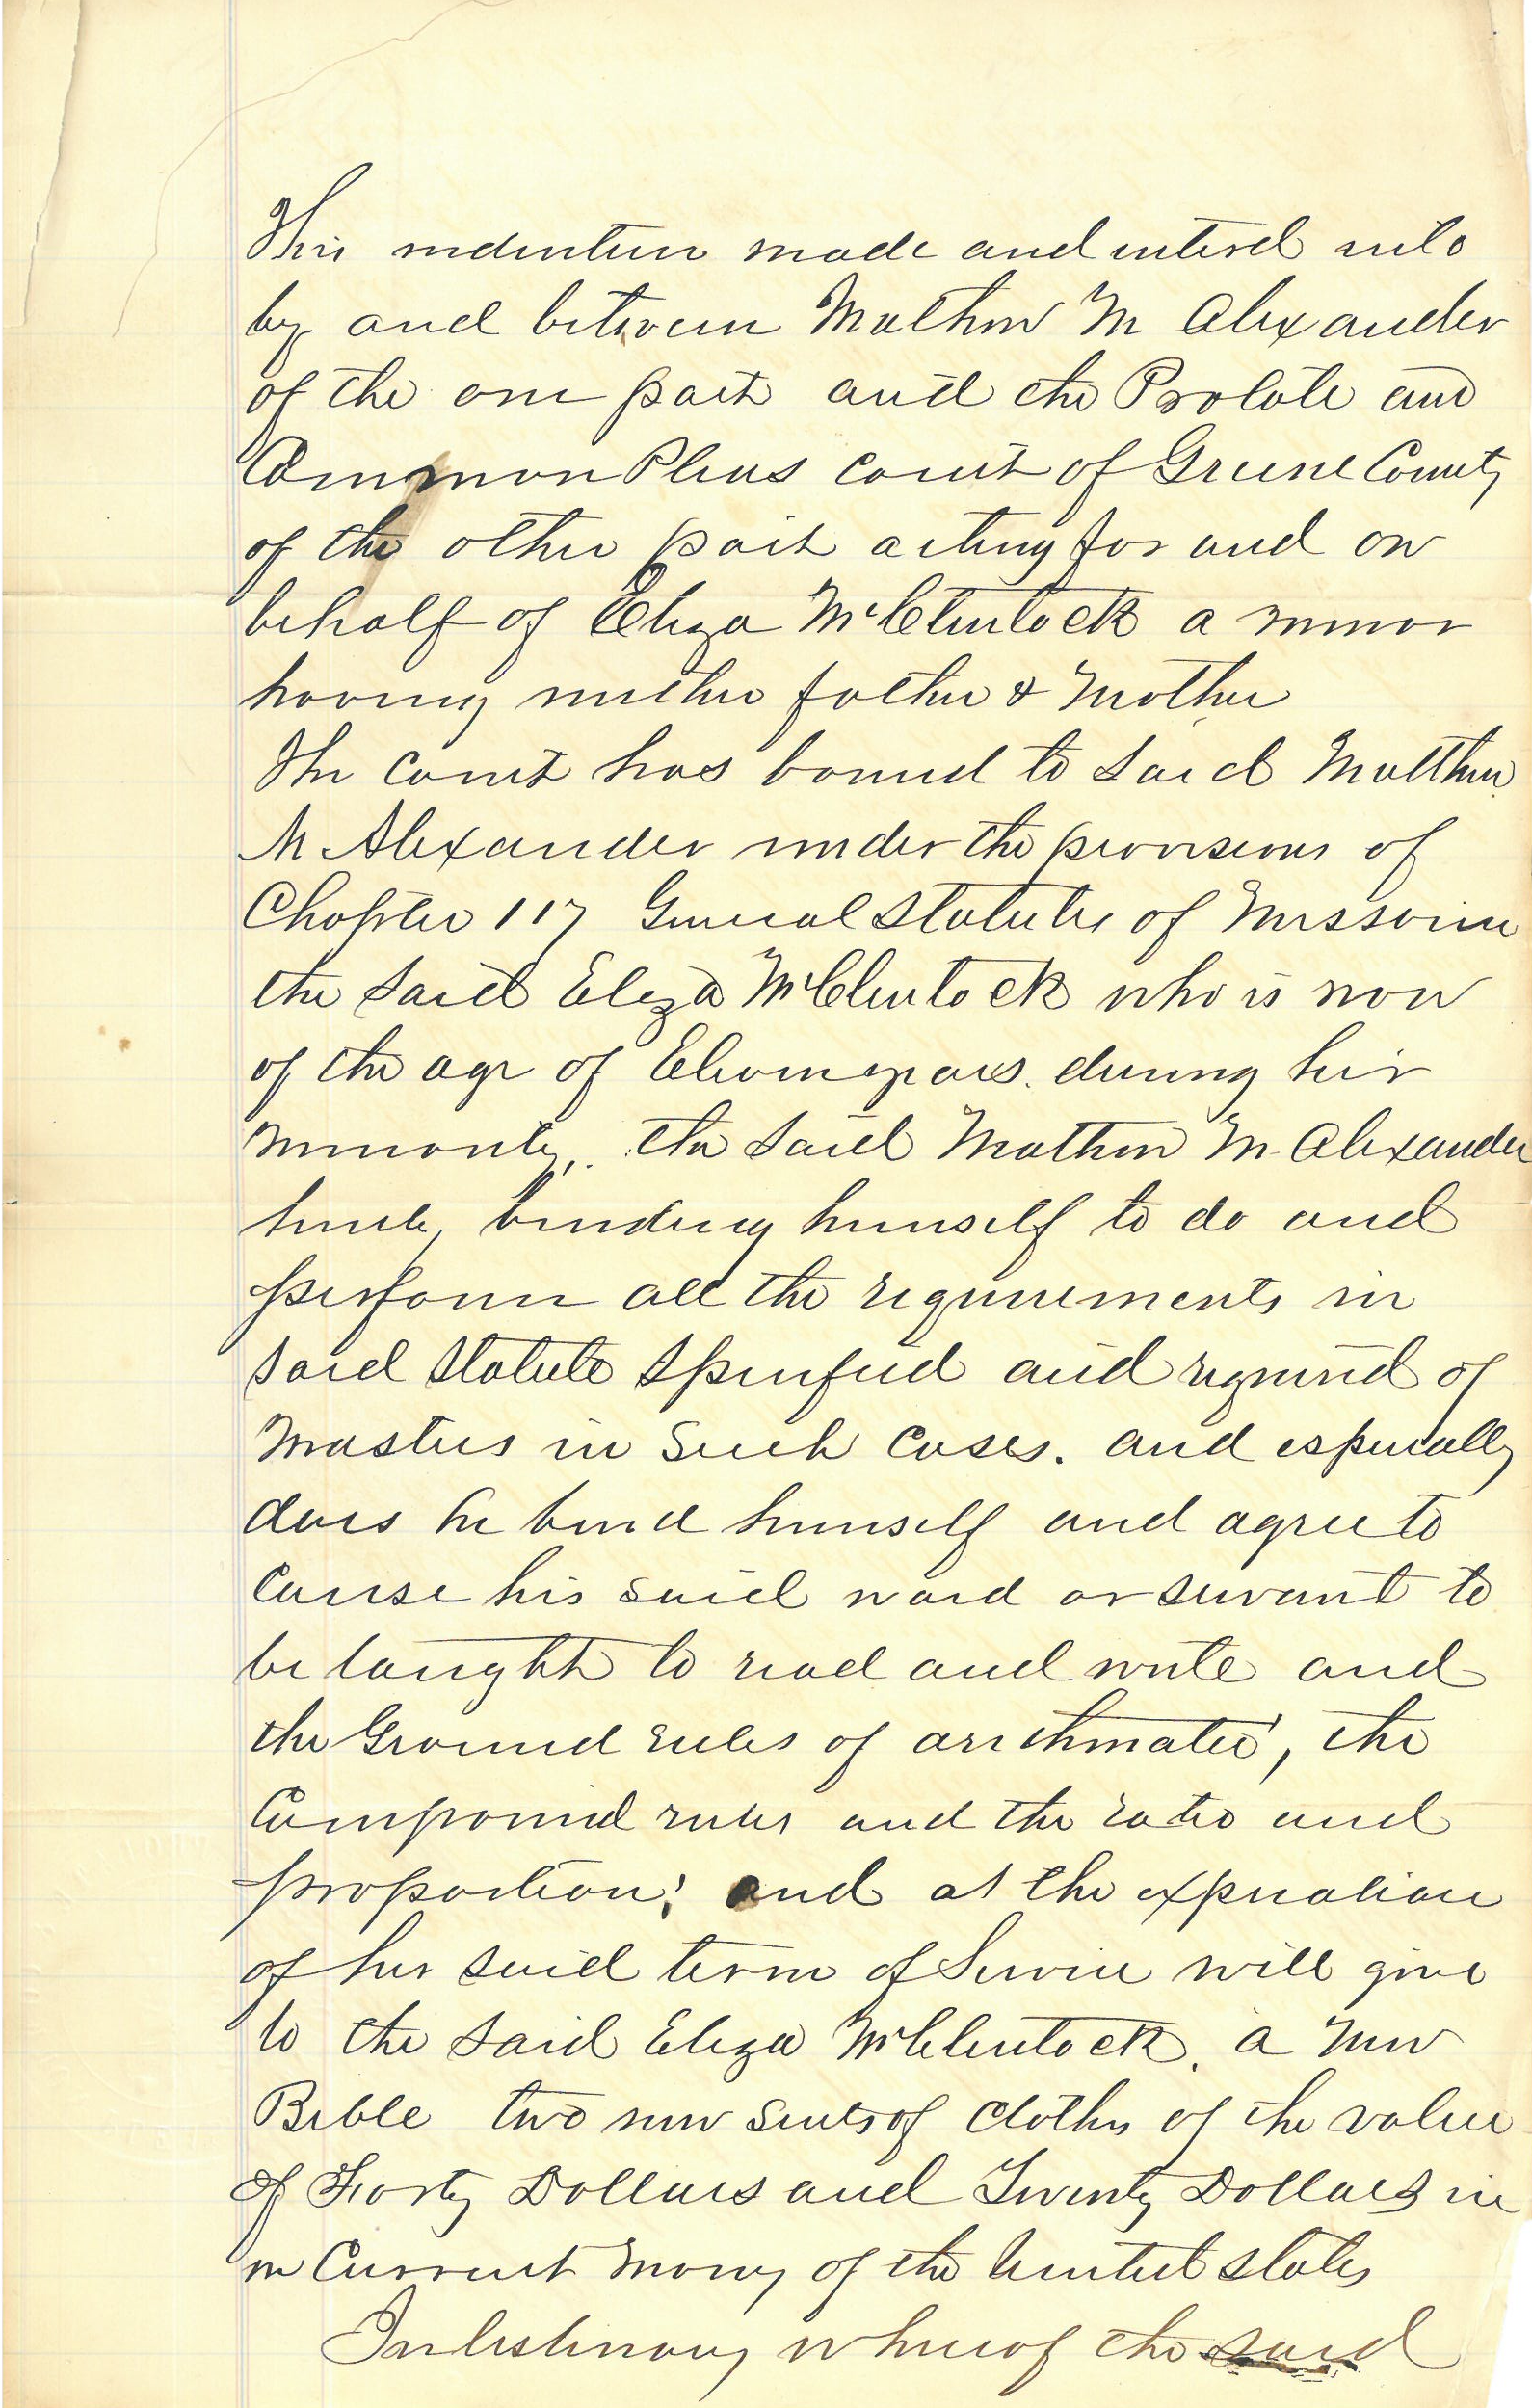 This indenture made and enterd into
by and between Mathew M Alexander
of the one part and the Probate and
Common Pleas court of Greene County
of the other part acting for and on
behalf of Eliza McClintock a minor
having neither father & Mother
The Court has bound to said Matthew
M Alexander under the provisions of
Chapter 117 General Statutes of Missouri
the said Eliza McClintock who is now
of the age of Eleven years. during her
minority,. the said Mathew M Alexander
hereby binding himself to do and
perform all the requirements in
said statute specified and required of
Masters in such cases. and especially
does he bind himself and agree to
Cause his said ward or servant to
be taught to read and write and
the Ground rules of arithmatic, the
Compound rules and the ratio and
proportion; and at the expiration
of her said term of Service will give
to the said Eliza McClintock. a new
Bible two new suits of clothes of the value
of Forty Dollars and Twenty Dollars in
in Current Money of the United States
In testimony whereof the said